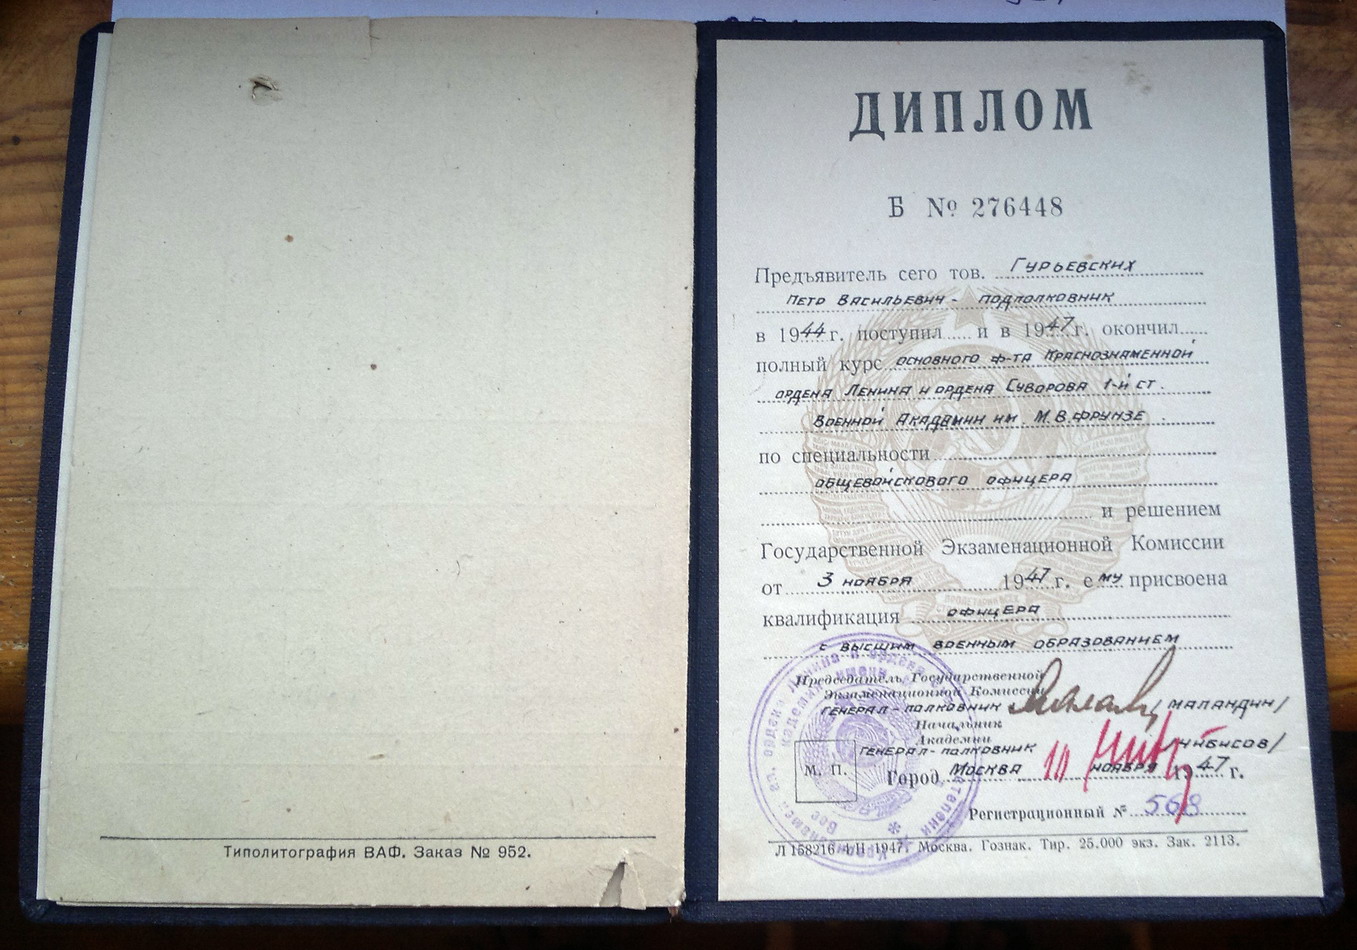 Типолитография ВАФ. Заказ № 952.
ДИПЛОМ
Б № 276448
Предъявитель сего тов. Гурьевских
Петр Васильевич - подполковник
в 1944 г. поступил и в 1947 г. окончил
полный курс основного ф-та Краснознаменной
ордена Ленина и ордена Суворова 1-й ст.
Военной Академии им. М.В.Фрунзе
по специальности
общевойскового офицера
и решением
Государственной Экзаменационной Комиссии
от 3 ноября 1947 г. ему присвоена
квалификация офицера
с высшим военным образованием
Председатель Государственной
Экзаменационной Комиссии
генерал-полковник /Маландин/
Начальник
Академии
генерал-полковник /Чибисов/
М. П. Город Москва 10 ноября 1947 г.
Регистрационный № 568
Л 158216 4/II 1947. Москва. Гознак. Тир. 25.000 экз. Зак. 2113.